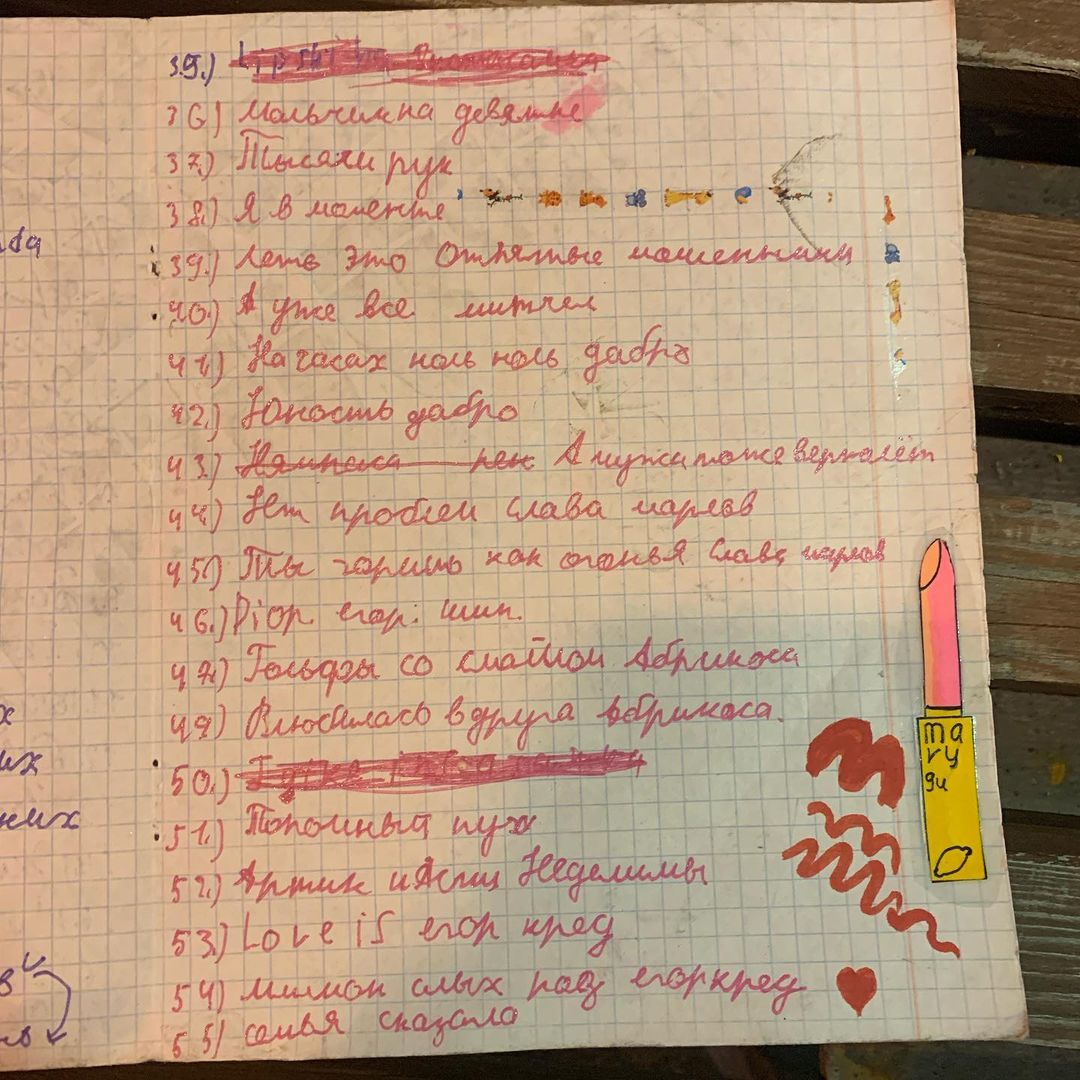 35.)
36.) Мальчик на девятке
37.) Тысячи рук
38.) Я в моменте
39.) Лето это Отпятые мошенники
40.) А уже все митчел
41.) На часах ноль ноль дабро
42.) Юность дабро
43.) А мужик тоже верталёт
44.) Нет проблем слава марлов
45.) Ты горишь как огонья Слава марлов
46.) Dior егор. шип.
47.) Гольфы со смайлом Абрикоса
49) Влюбилась в друга вбрикоса.
50.)
51.) Тополиный пух
52.) Артик и Асти Неделимы
53.) Love is егор кред
54) милион алых роз егоркред
55) семья сказала
да
х
их
них
в
ma
ry
gu